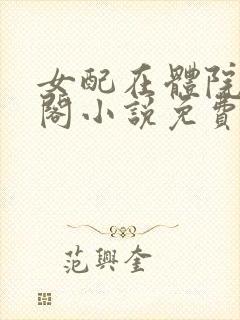 女配在體院
閣小說免費
范興奎